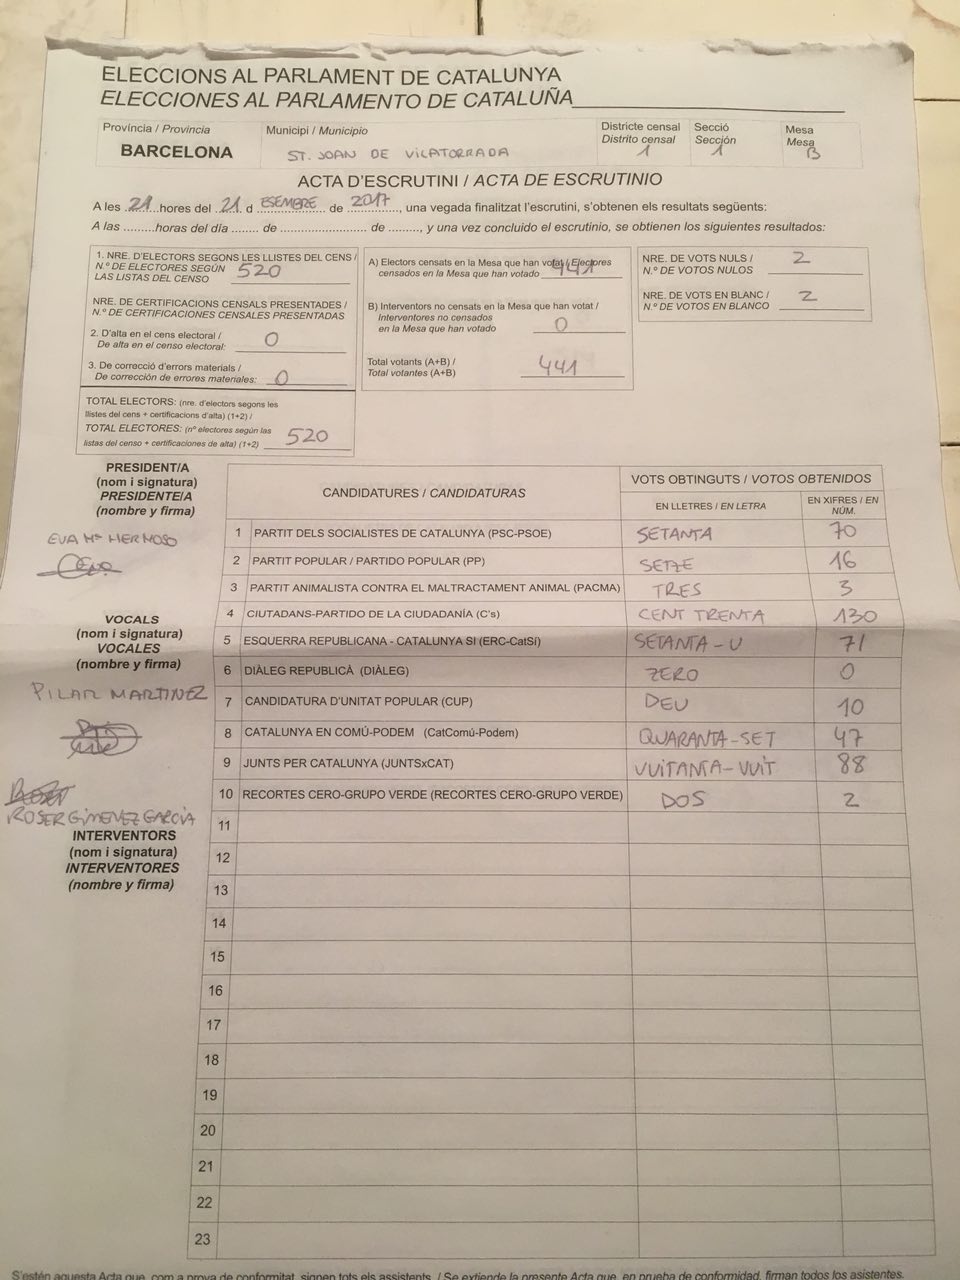 ELECCIONS AL PARLAMENT DE CATALUNYA
ELECCIONES AL PARLAMENTO DE CATALUÑA
Província / Provincia
BARCELONA
Municipi / Municipio
ST. JOAN DE VILATORRADA
Districte censal
Distrito censal 1
Secció
Sección 1
Mesa
Mesa B
ACTA D'ESCRUTINI / ACTA DE ESCRUTINIO
A les 21 hores del 21 d ESEMBRE de 2017, una vegada finalitzat l'escrutini, s'obtenen els resultats següents:
A las .........horas del día ........ de .......................... de ........., y una vez concluido el escrutinio, se obtienen los siguientes resultados:
1. NRE. D'ELECTORS SEGONS LES LLISTES DEL CENS /
N.º DE ELECTORES SEGÚN
LAS LISTAS DEL CENSO 520
NRE. DE CERTIFICACIONS CENSALS PRESENTADES /
N.º DE CERTIFICACIONES CENSALES PRESENTADAS
2. D'alta en el cens electoral /
De alta en el censo electoral: 0
3. De correcció d'errors materials /
De corrección de errores materiales: 0
TOTAL ELECTORS: (nre. d'electors segons les
llistes del cens + certificacions d'alta) (1+2) /
TOTAL ELECTORES: (nº electores según las
listas del censo + certificaciones de alta) (1+2) 520
A) Electors censats en la Mesa que han votat / Electores
censados en la Mesa que han votado 441
B) Interventors no censats en la Mesa que han votat /
Interventores no censados
en la Mesa que han votado 0
Total votants (A+B) /
Total votantes (A+B) 441
NRE. DE VOTS NULS /
N.º DE VOTOS NULOS 2
NRE. DE VOTS EN BLANC /
N.º DE VOTOS EN BLANCO 2
PRESIDENT/A
(nom i signatura)
PRESIDENTE/A
(nombre y firma)
EVA Mª HERMOSO
VOCALS
(nom i signatura)
VOCALES
(nombre y firma)
PILAR MARTINEZ
ROSER GIMENEZ GARCIA
INTERVENTORS
(nom i signatura)
INTERVENTORES
(nombre y firma)
CANDIDATURES / CANDIDATURAS
VOTS OBTINGUTS / VOTOS OBTENIDOS
EN LLETRES / EN LETRA
EN XIFRES / EN
NÚM.
1 PARTIT DELS SOCIALISTES DE CATALUNYA (PSC-PSOE) SETANTA 70
2 PARTIT POPULAR / PARTIDO POPULAR (PP) SETZE 16
3 PARTIT ANIMALISTA CONTRA EL MALTRACTAMENT ANIMAL (PACMA) TRES 3
4 CIUTADANS-PARTIDO DE LA CIUDADANÍA (C's) CENT TRENTA 130
5 ESQUERRA REPUBLICANA - CATALUNYA SÍ (ERC-CatSí) SETANTA-U 71
6 DIÀLEG REPUBLICÀ (DIÀLEG) ZERO 0
7 CANDIDATURA D'UNITAT POPULAR (CUP) DEU 10
8 CATALUNYA EN COMÚ-PODEM (CatComú-Podem) QUARANTA-SET 47
9 JUNTS PER CATALUNYA (JUNTSxCAT) VUITANTA-VUIT 88
10 RECORTES CERO-GRUPO VERDE (RECORTES CERO-GRUPO VERDE) DOS 2
11
12
13
14
15
16
17
18
19
20
21
22
23
S'estén aquesta Acta que, com a prova de conformitat, signen tots els assistents. / Se extiende la presente Acta que, en prueba de conformidad, firman todos los asistentes.